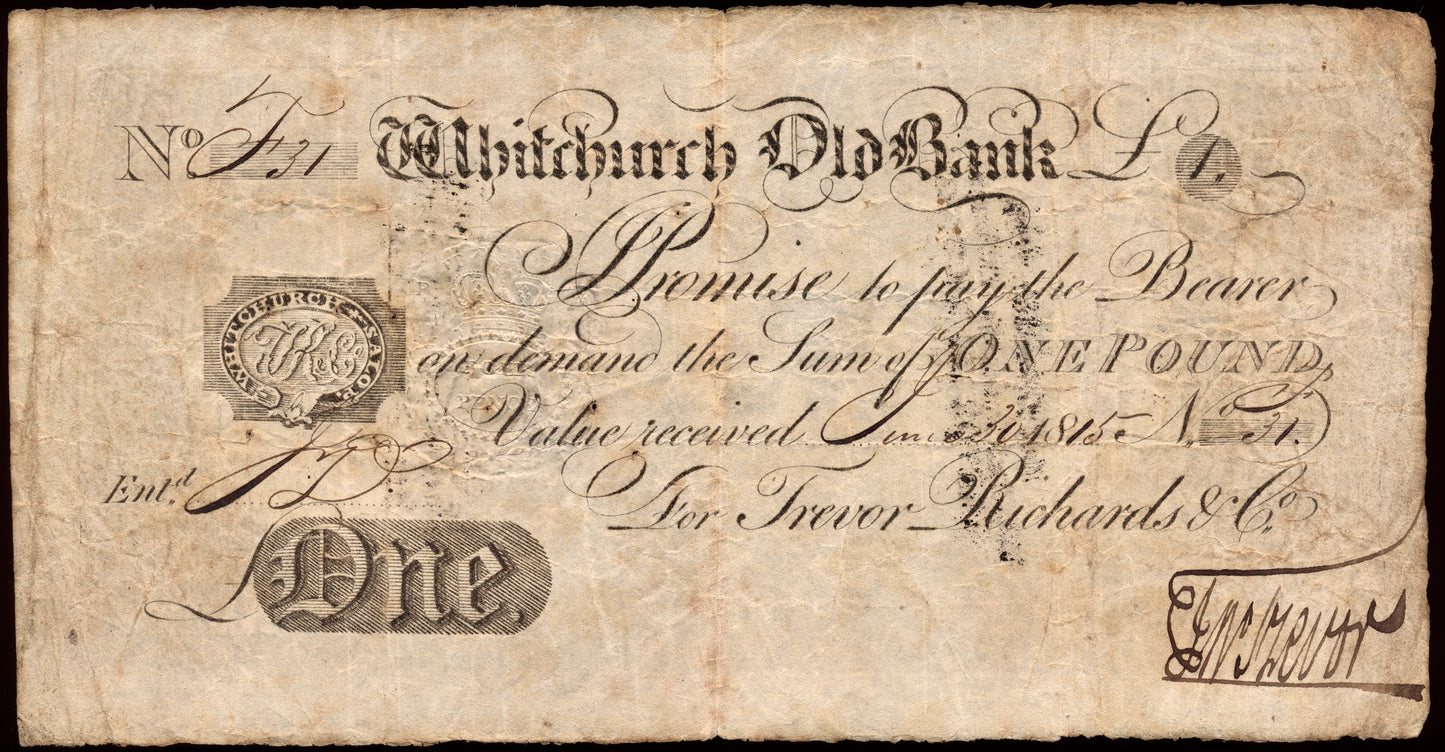 No F31 Whitchurch Old Bank £1.
I Promise to pay the Bearer
WHITCHURCH SALOP
on demand the Sum of ONE POUND,
Value received June 30 1815 No. 31.
Ent.d
For Trevor Richards & Co.
£One.
Jno Trevor